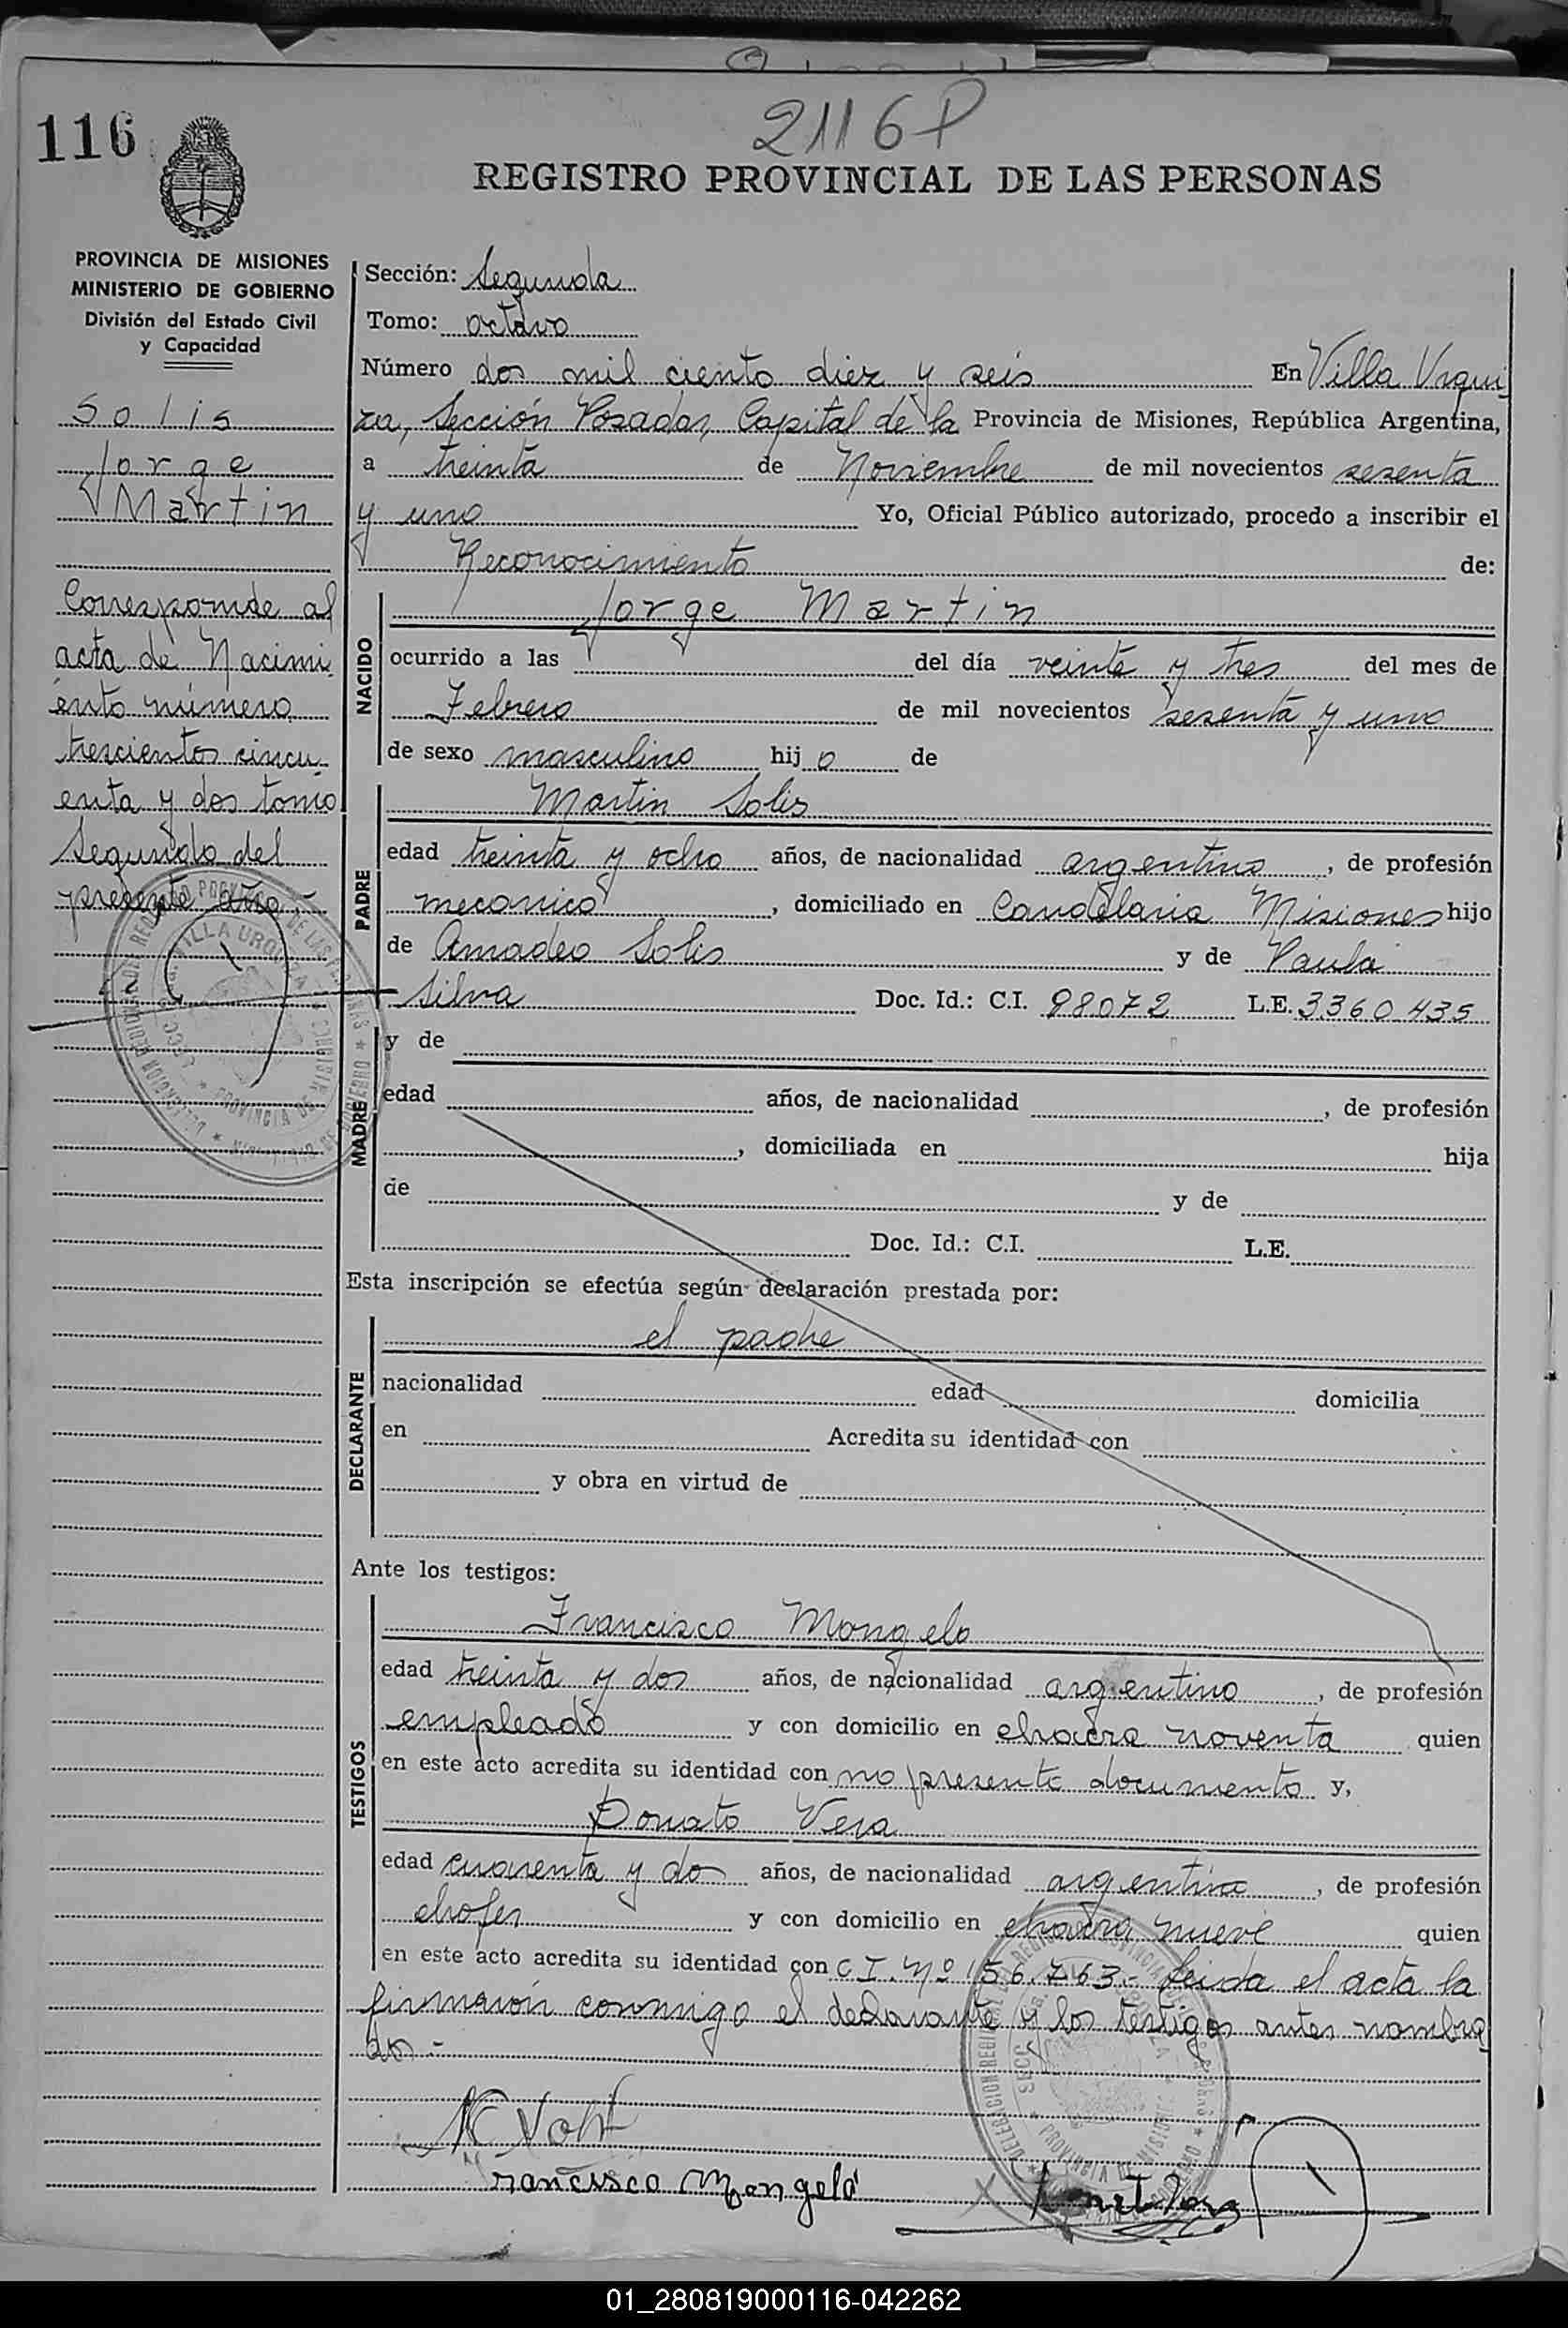 116
2116 P
REGISTRO PROVINCIAL DE LAS PERSONAS
PROVINCIA DE MISIONES
MINISTERIO DE GOBIERNO
División del Estado Civil
y Capacidad
Solis
Jorge
Martin
Corresponde al
acta de Nacimi
ento número
trescientos cincu
enta y dos tomo
Segundo del
presente año.-
Sección: Segunda
Tomo: octavo
Número dos mil ciento diez y seis En Villa Urqui
za, Sección Posadas, Capital de la Provincia de Misiones, República Argentina,
a treinta de Noviembre de mil novecientos sesenta
y uno Yo, Oficial Público autorizado, procedo a inscribir el
Reconocimiento de:
NACIDO
Jorge Martin
ocurrido a las del día veinte y tres del mes de
Febrero de mil novecientos sesenta y uno
de sexo masculino hijo de
PADRE
Martin Solis
edad treinta y ocho años, de nacionalidad argentino, de profesión
mecanico, domiciliado en Candelaria Misiones hijo
de Amadeo Solis y de Paula
Silva Doc. Id.: C.I. 98072 L.E. 3360435
MADRE
y de
edad años, de nacionalidad , de profesión
, domiciliada en hija
de y de
Doc. Id.: C.I. L.E.
Esta inscripción se efectúa según declaración prestada por:
DECLARANTE
el padre
nacionalidad edad domicilia
en Acredita su identidad con
y obra en virtud de
Ante los testigos:
TESTIGOS
Francisco Mongelo
edad treinta y dos años, de nacionalidad argentino, de profesión
empleado y con domicilio en chacra noventa quien
en este acto acredita su identidad con no presento documento y,
Donato Vera
edad cuarenta y do años, de nacionalidad argentino, de profesión
chofer y con domicilio en chacra nueve quien
en este acto acredita su identidad con C I. Nº 156.763.- Leida el acta la
firmaron conmigo el declarante y los testigos antes nombra
dos.-
Francisco Mongelo
01_280819000116-042262